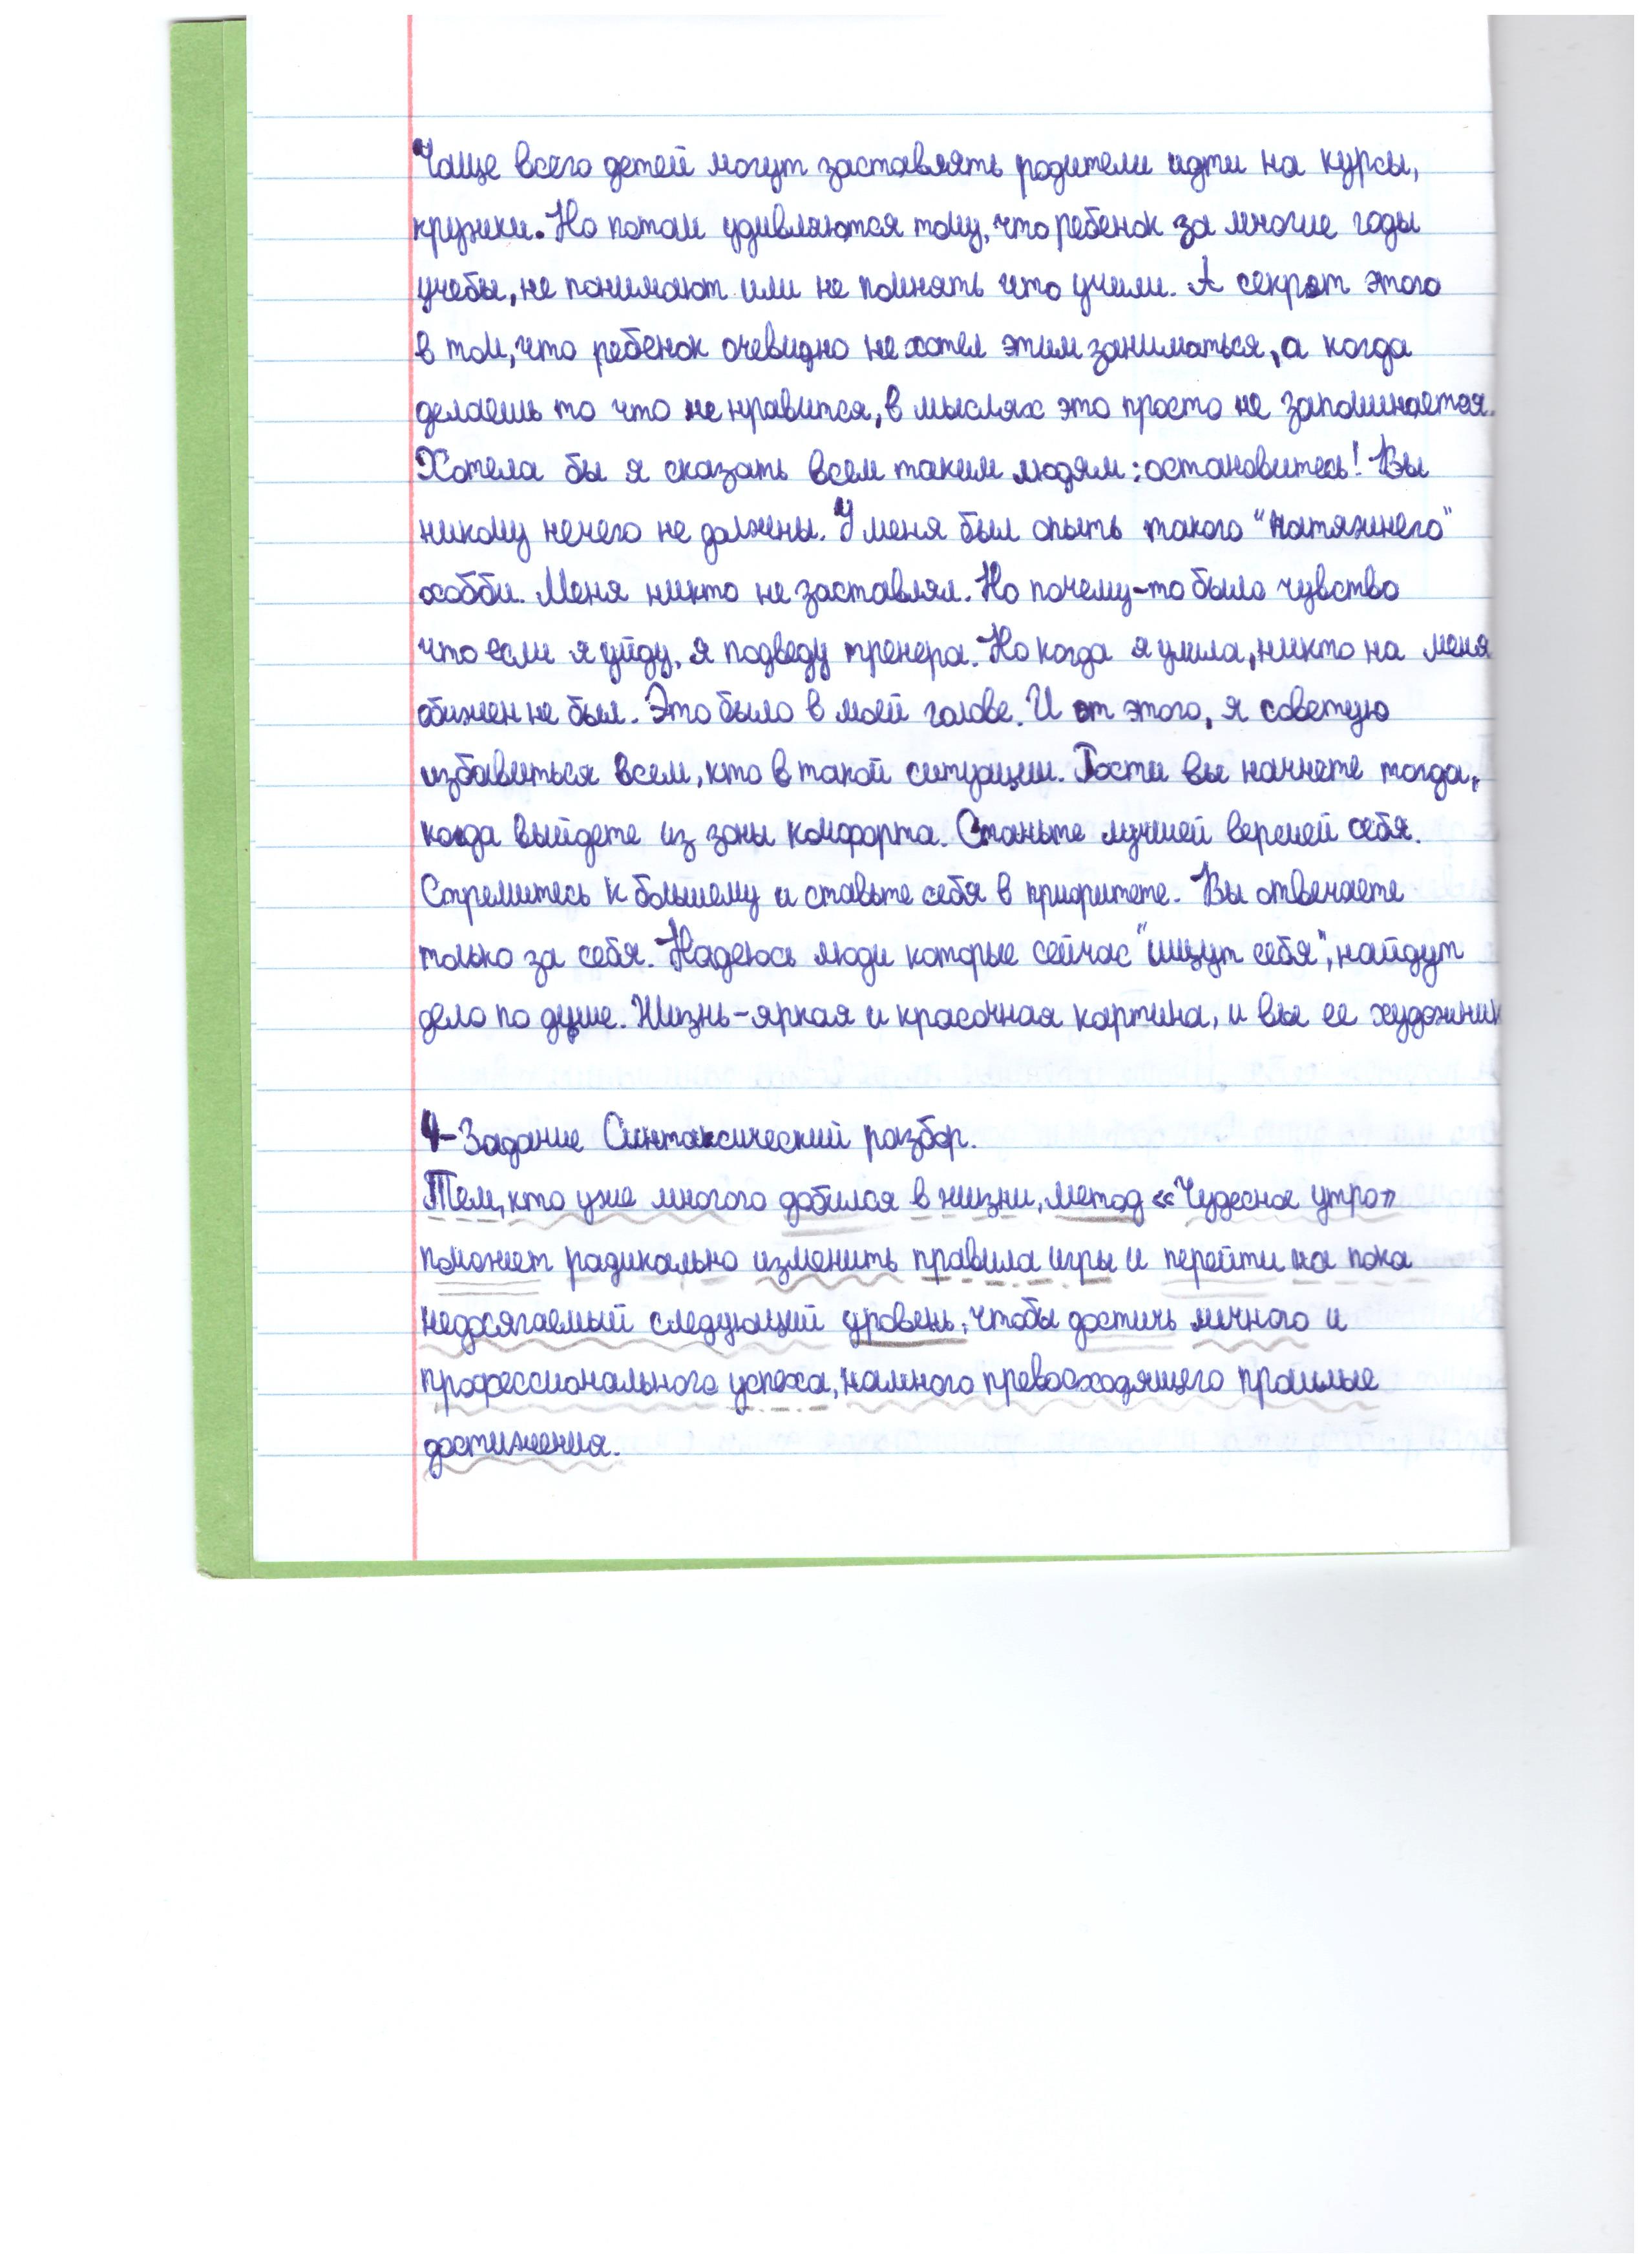 Чаще всего детей могут заставлять родители идти на курсы,
кружки. Но потом удивляются тому, что ребенок за многие годы
учебы, не понимают или не помнять что учили. А секрет этого
в том, что ребенок очевидно не хотел этим заниматься, а когда
делаешь то что не нравится, в мыслях это просто не запоминается.
Хотела бы я сказать всем таким людям: остановитесь! Вы
никому нечего не должны. У меня был опыть такого "натяжнего"
хобби. Меня никто не заставлял. Но почему-то было чувство
что если я уйду, я подведу тренера. Но когда я ушла, никто на меня
обижен не был. Это было в моей голове. И от этого, я советую
избавиться всем, кто в такой ситуации. Рости вы начнете тогда,
когда выйдете из зоны комфорта. Станьте лучшей версией себя.
Стремитесь к большему и ставьте себя в приоритете. Вы отвечаете
только за себя. Надеюсь люди которые сейчас "ищут себя", найдут
дело по душе. Жизнь-яркая и красочная картина, и вы ее художник
4-Задание Синтаксический разбор.
Тем, кто уже многого добился в жизни, метод «Чудесное утро»
поможет радикально изменить правила игры и перейти на пока
недосягаемый следующий уровень, чтобы достичь личного и
профессионального успеха, намного превосходящего прошлые
достижения.